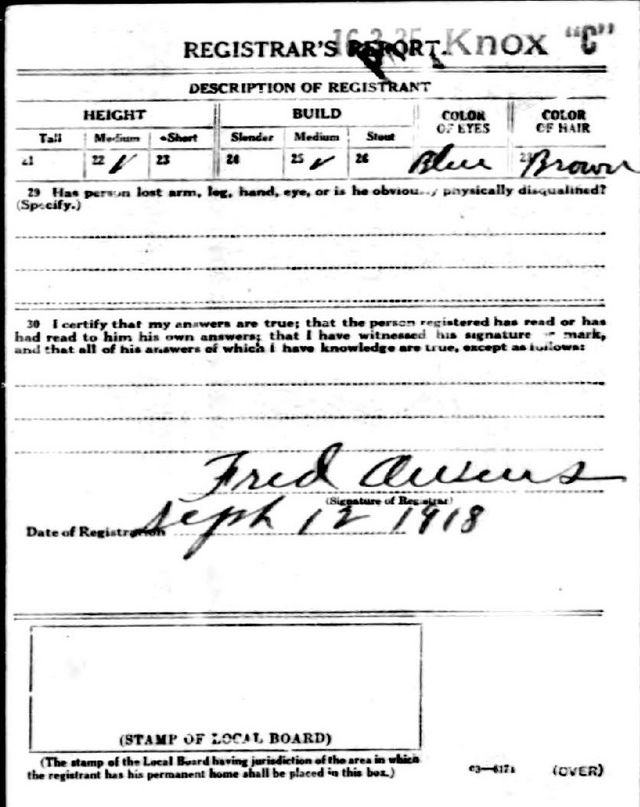 REGISTRAR'S REPORT. 16 3 35 Knox "C"
DESCRIPTION OF REGISTRANT
HEIGHT BUILD COLOR OF EYES COLOR OF HAIR
Tall Medium Short Slender Medium Stout
21 22 ✓ 23 24 25 ✓ 26 Blue 28 Brown
29 Has person lost arm, leg, hand, eye, or is he obviously physically disqualified?
(Specify.)
30 I certify that my answers are true; that the person registered has read or has
had read to him his own answers; that I have witnessed his signature or mark,
and that all of his answers of which I have knowledge are true, except as follows:
Fred
(Signature of Registrar)
Date of Registration Sept 12 1918
(STAMP OF LOCAL BOARD)
(The stamp of the Local Board having jurisdiction of the area in which
the registrant has his permanent home shall be placed in this box.)
03—6171 (OVER)